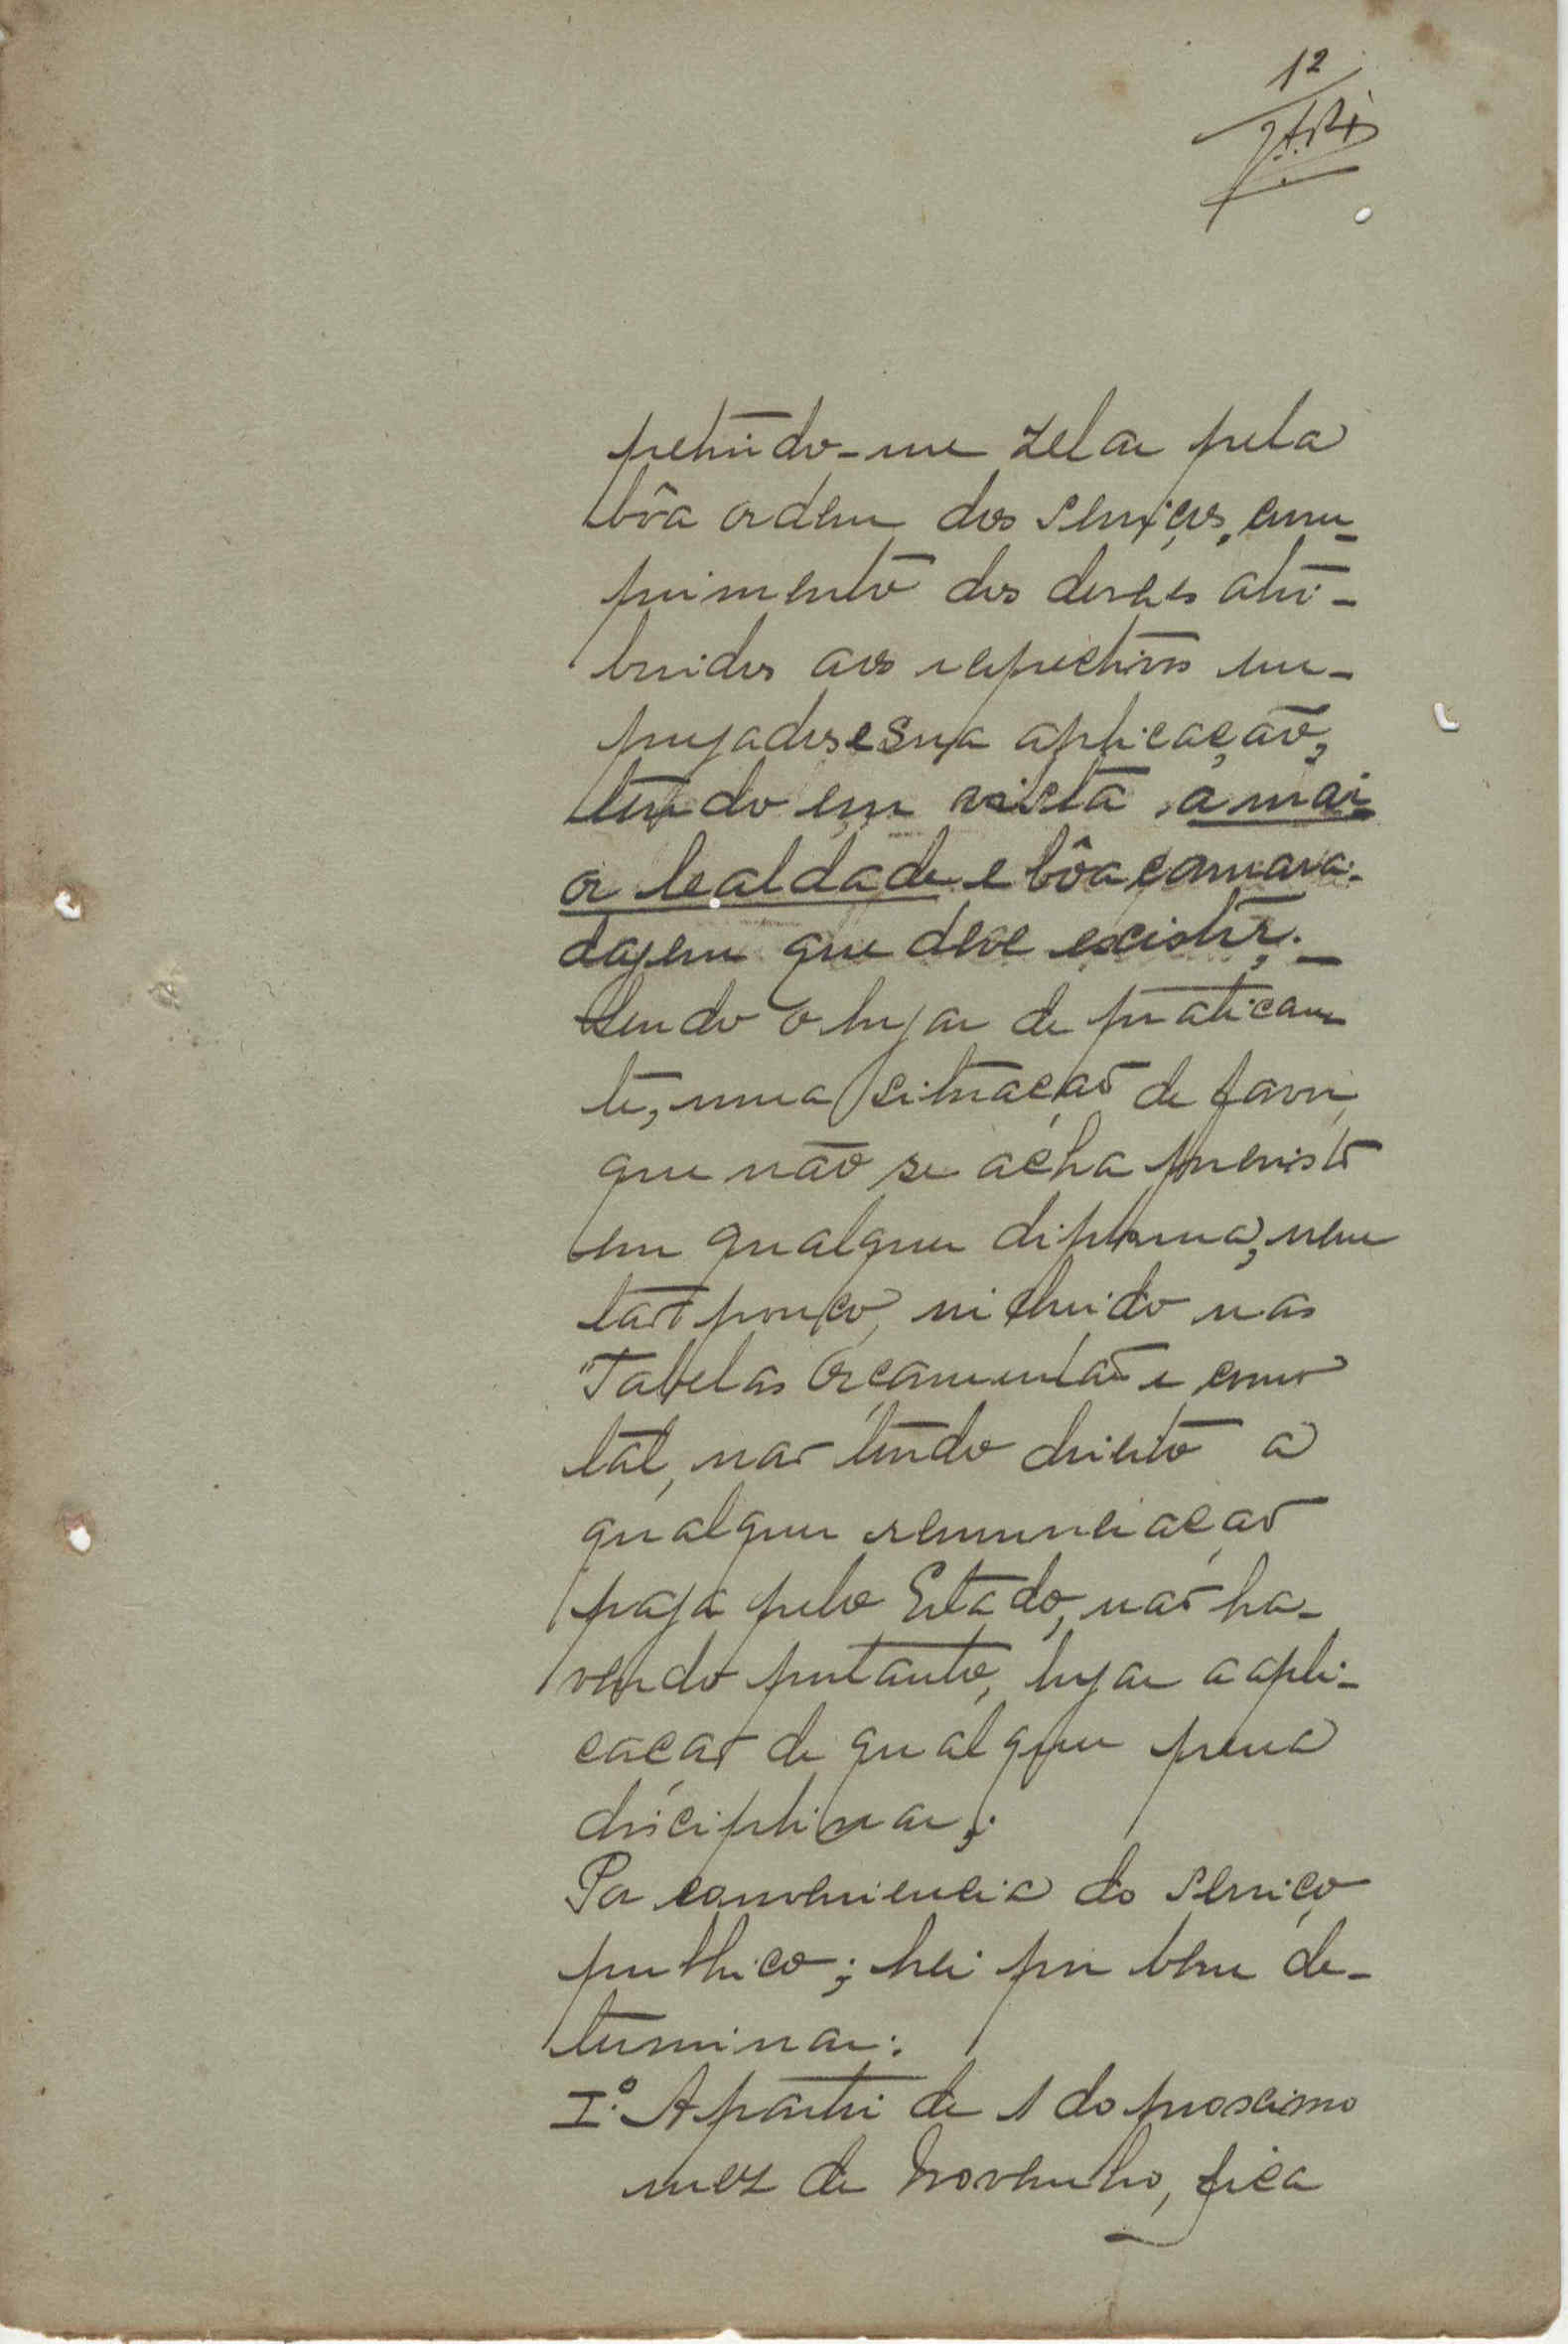 12
petindo-me zelar pela
bôa ordem dos serviços, cum-
primento dos deveres atri-
buidos aos respectivos em-
pregados e sua aplicação,
tendo em vista a mai-
or lealdade e bôa camara-
dagem que deve existir;_
Sendo o lugar de pratican-
te, uma situação de favor,
que não se acha previsto
em qualquer diploma, nem
tão pouco, incluido nas
Tabelas Orçamentaes e como
tal, não tendo direito a
qualquer remuneração
paga pelo Estado, não ha-
vendo portanto, lugar a apli-
cação de qualquer pena
disciplinar;
Por conveniencia do serviço
publico; hei por bem de-
terminar:
I.º A partir de 1 do proximo
mez de Novembro, fica